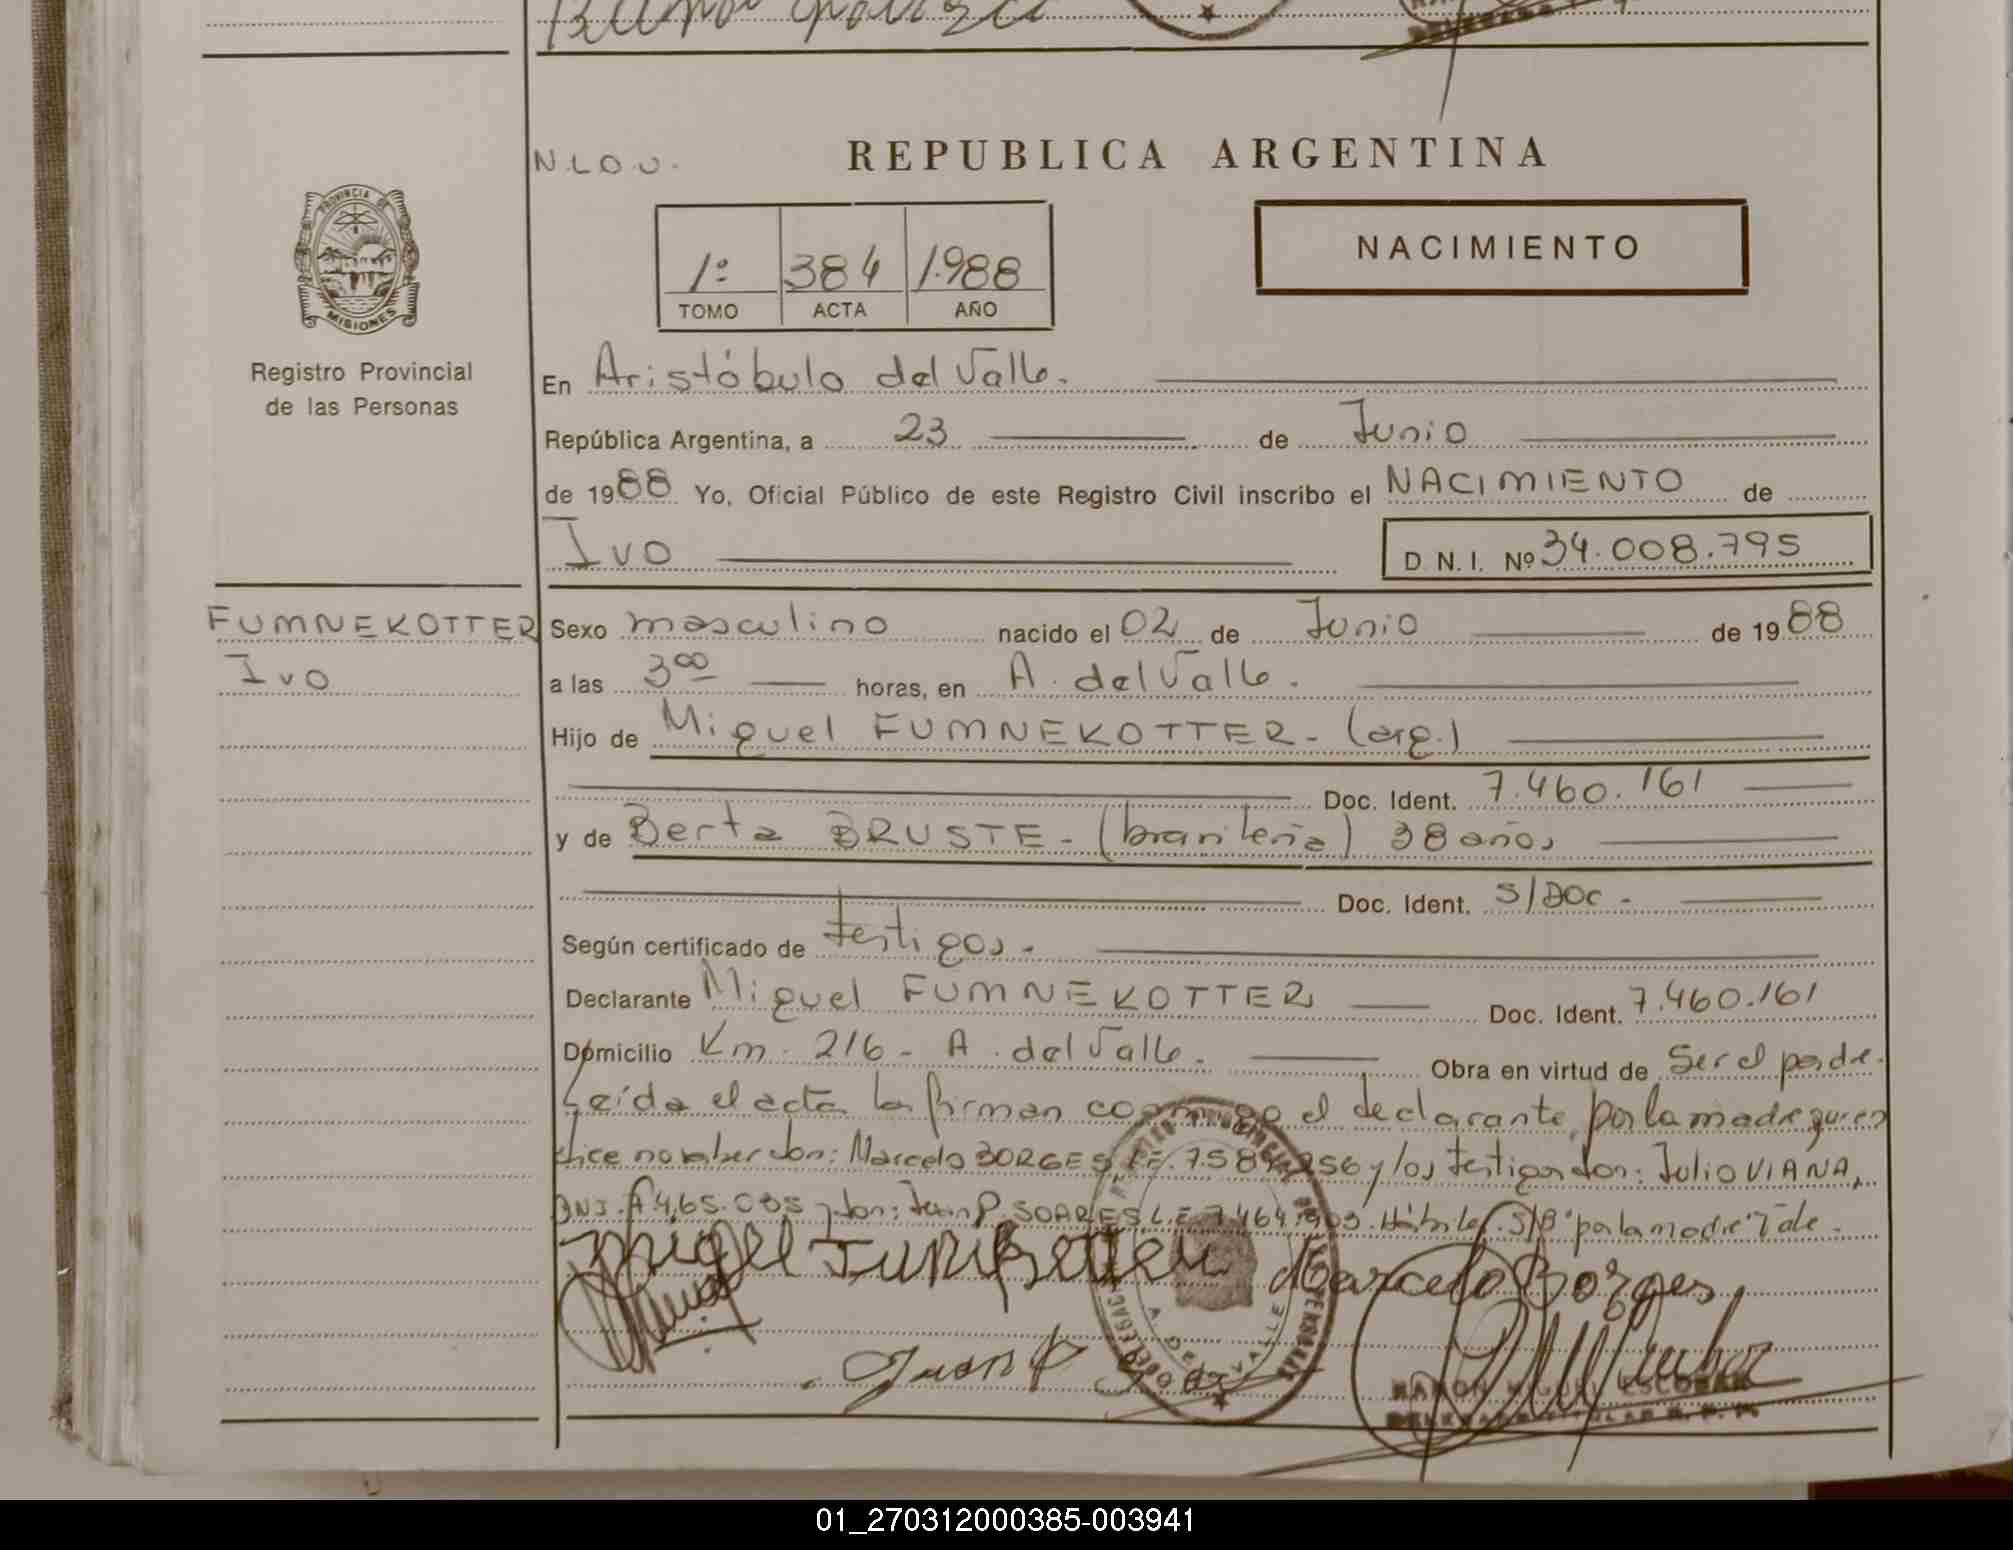 N.L.O.U.
REPUBLICA ARGENTINA
PROVINCIA DE
MISIONES
Registro Provincial
de las Personas
1º 384 1.988
TOMO ACTA AÑO
NACIMIENTO
En Aristóbulo del Valle.
República Argentina, a 23 de Junio
de 1988 Yo, Oficial Público de este Registro Civil inscribo el NACIMIENTO de
Ivo D.N.I. Nº 34.008.795
FUMNEKOTTER
Ivo
Sexo masculino nacido el 02 de Junio de 1988
a las 3⁰⁰ horas, en A. del Valle.
Hijo de Miguel FUMNEKOTTER - (arg.)
Doc. Ident. 7.460.161
y de Berta BRUSTE - (brasileña) 38 años
Doc. Ident. S/DOC -
Según certificado de testigos.
Declarante Miguel FUMNEKOTTER Doc. Ident. 7.460.161
Domicilio Km. 216 - A. del Valle. Obra en virtud de Ser el padre.
Leída el acta la firman conmigo el declarante, por la madre quien
dice no saber don: Marcelo BORGES, L.E. 7.584.256 y los testigos don: Julio VIANA,
y don: Juan P. SOARES L.E. Hábiles. "por la madre"
Marcelo Borges
Juan P
A. DEL VALLE
RAMON MIGUEL ESCOBAR
01_270312000385-003941